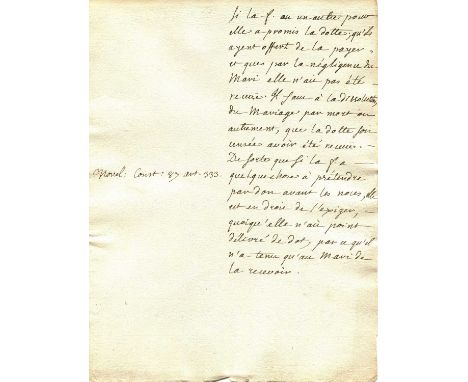 Si la f. ou un autre pour
elle a promis la dotte, qu'ils
ayent offert de la payer,
et que par la négligence du
Mari elle n'ait pas été
recuie Il faut à la dissolution
du Mariage par mort ou
autrement, que la dotte soit
censée avoir été recuie. -
De sorte que si la f. a -
Novel: Const: 87 art. 333. quelque chose à prétendre
par don avant les noces, elle
est en droit de l'exiger, -
quoiqu'elle n'ait point
délivré de dot, par ce qu'il
n'a tenu qu'au Mari de
la recevoir.